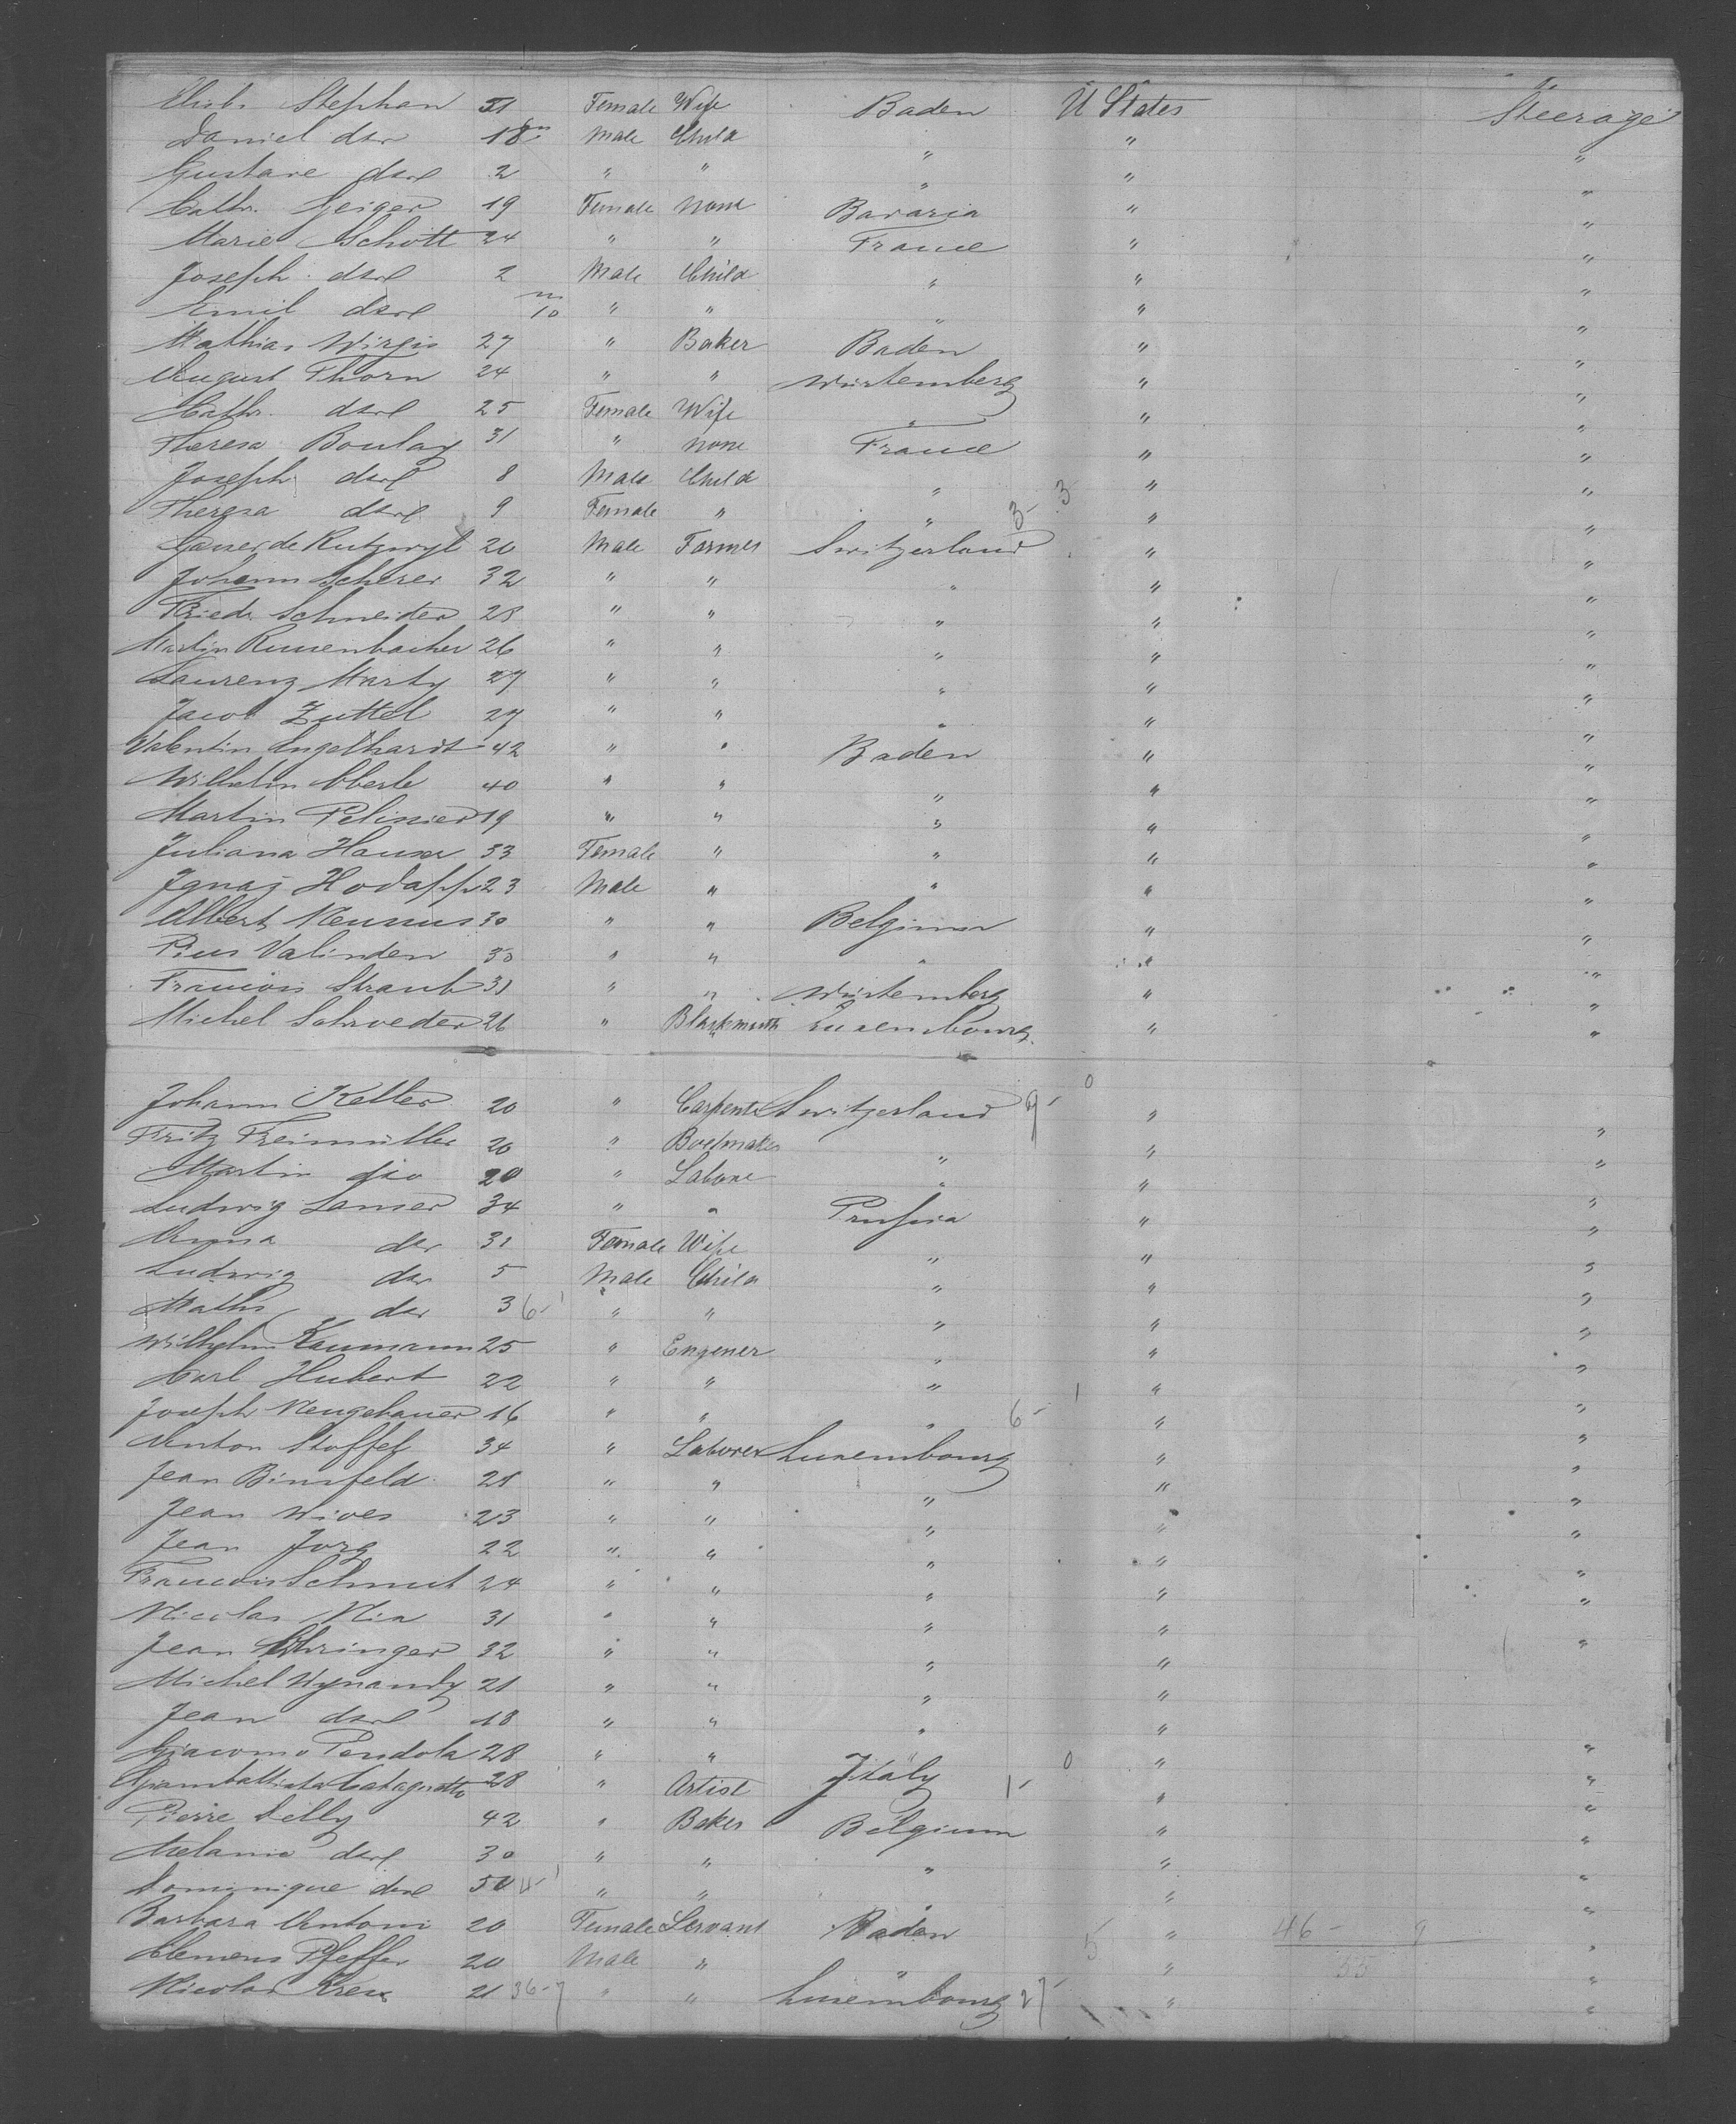 Elisb. Stephan 31 Female Wife Baden U States Steerage
Daniel der 18 m Male Child " " "
Gustave derl 2 " " " " "
Cathr. Geiger 19 Female None Bavaria " "
Marie Schott 24 " " France " "
Joseph derl 2 Male Child " " "
Emil derl 10 m " " " " "
Mathias Wirgis 27 " Baker Baden " "
August Thorn 24 " " Würtemberg " "
Cathr. derl 25 Female Wife " " "
Theresa Boulay 31 " None France " "
Joseph derl 8 Male Child " " "
Theresa derl 9 Female " " 3- 3 " "
Ganser de Rutzwyl 20 Male Farmer Switzerland " "
Johann Scherer 32 " " " " "
Friedr Schneider 28 " " " " "
Martin Russenbacher 26 " " " " "
Laurenz Marty 27 " " " " "
Jacob Zuttel 27 " " " " "
Valentin Engelhardt 42 " " Baden " "
Wilhelm Eberle 40 " " " " "
Martin Pelissier 19 " " " " "
Juliana Hauser 33 Female " " " "
Ignaz Hodapp 23 Male " " " "
Albert Neunus 30 " " Belgium " "
Pius Valinden 30 " " " " "
Francois Straub 31 " " Würtemberg " "
Michel Schroeder 26 " Blacksmith Luxembourg " "
Johann Keller 20 " Carpenter Switzerland 9- 0 " "
Fritz Freimüller 20 " Bootmaker " " "
Martin dio 20 " Labore " " "
Ludwig Lanser 34 " " Prussia " "
Anna der 31 Female Wife " " "
Ludwig der 5 Male Child " " "
Maths der 3 6-1 " " " " "
Wilhelm Kaumann 25 " Engener " " "
Carl Hubert 22 " " " 1 " "
Joseph Neugebauer 16 " " " 6- " "
Anton Stoffel 34 " Laborer Luxembourg " "
Jean Binsfeld 28 " " " " "
Jean Wives 23 " " " " "
Jean Jorg 22 " " " " "
Francois Schmit 24 " " " " "
Nicolas Nia 31 " " " " "
Jean Ehringer 32 " " " " "
Michel Wynandy 21 " " " " "
Jean derl 18 " " " " "
Giacomo Pendola 28 " " Italy 0 " "
Giambattista Catagnotto 28 " Artist " 1- " "
Pierre Lelly 42 " Baker Belgium " "
Melanie derl 30 " " " " "
Dominique derl 50 4-1 " " " " "
Barbara Antoni 20 Female Servant Baden 5 " 46- 9 "
Clemens Pfeffer 20 Male " " " 55 "
Nicolas Krex 21 36-7 " " Luxembourg 27- " "